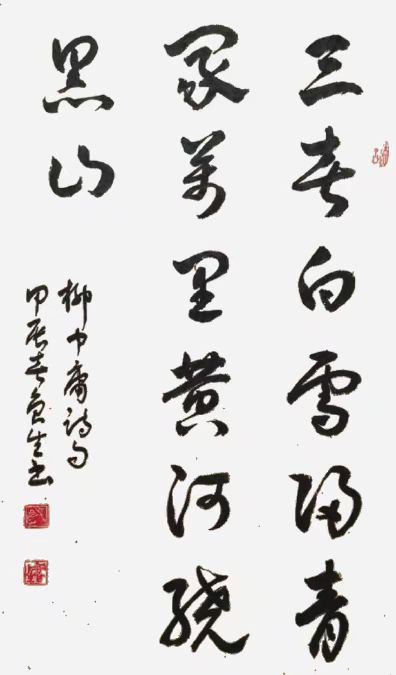 三春白雪歸青
冢萬里黄河繞
黑山
柳中庸詩句
甲辰春生书